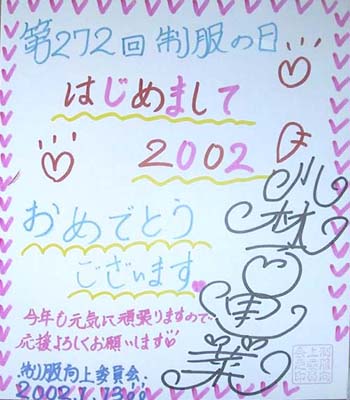 第272回 制服の日
はじめまして
2002
おめでとう
ございます
今年も元気に頑張りますので
応援よろしくお願いします
制服向上委員会
2002.1.13